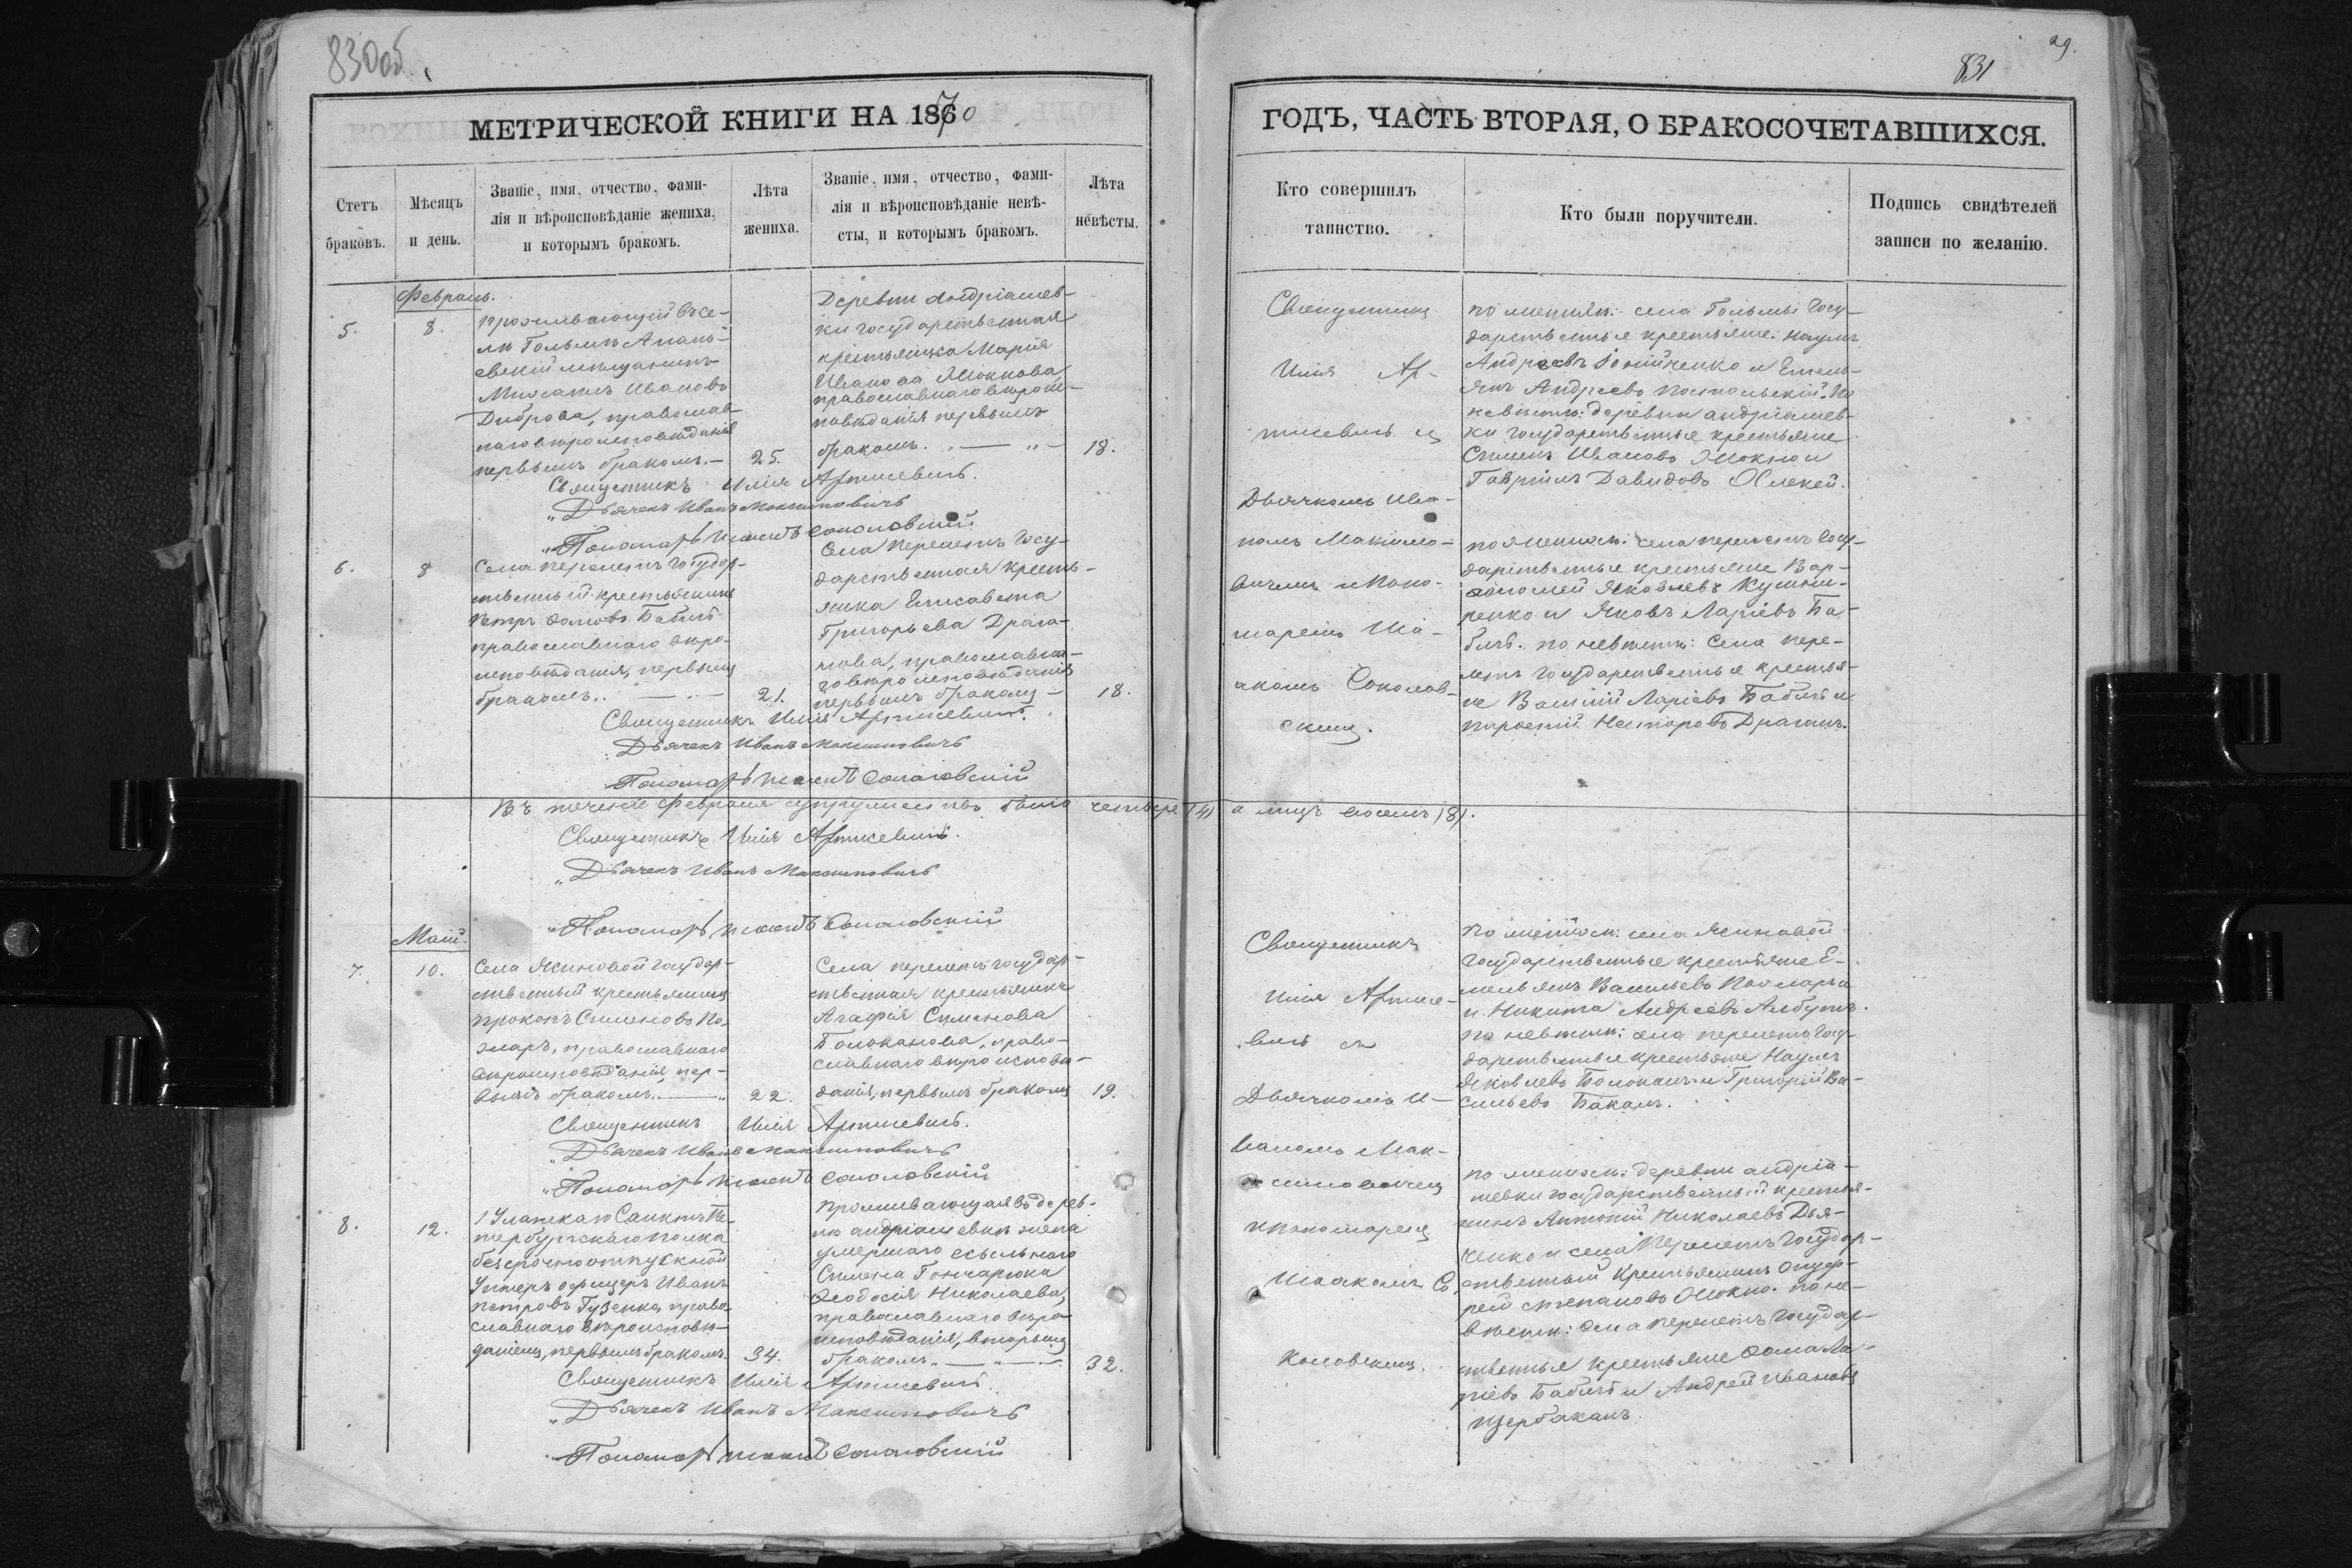 830об.
МЕТРИЧЕСКОЙ КНИГИ НА 1870
Счетъ браковъ.
Мѣсяцъ и день.
Званіе, имя, отчество, фами-
лія и вѣроисповѣданіе жениха,
и которымъ бракомъ.
Лѣта жениха.
Званіе, имя, отчество, фами-
лія и вѣроисповѣданіе невѣ-
сты, и которымъ бракомъ.
Лѣта невѣсты.
Февраль.
5.
8.
проживающій въ се-
лѣ Гольмѣ Анань-
евскій мѣщанинъ
Михаилъ Ивановъ
Диброва, православ-
наго вѣроисповѣданія
первымъ бракомъ.—
25.
Деревни Андріашев-
ки государственная
крестьянка Марія
Иванова Мокнова
православнаго вѣроис-
повѣданія первымъ
бракомъ.
18.
Священникъ Илія Артисевичъ.
Дьячекъ Иванъ Максимовичъ
Пономарь Исаакъ Соколовскій
6.
8
Села Перелетъ государ-
ственный крестьянинъ
Петръ Ѳомовъ Бабичъ
православнаго вѣро-
исповѣданія, первымъ
бракомъ.
21.
Села Перелетъ госу-
дарственная кресть-
янка Елисавета
Григорьева Драга-
нова, православна-
го вѣроисповѣданія
первымъ бракомъ —
18.
Священникъ Илія Артисевичъ.
Дьячекъ Иванъ Максимовичъ
Пономарь Исаакъ Соколовскій
Въ теченіе Февраля супружествъ было четыре (4) а лицъ восемь (8).
Священникъ Илія Артисевичъ.
Дьячекъ Иванъ Максимовичъ
Пономарь Исаакъ Соколовскій
Маій.
7.
10.
Села Ясиновой государ-
ственный крестьянинъ
Прокопъ Сименовъ По-
жаръ, православнаго
вѣроисповѣданія пер-
вымъ бракомъ.
22.
Села Перелетъ государ-
ственная крестьянка
Агафія Сименова
Болоканова, право-
славнаго вѣроисповѣ-
данія, первымъ бракомъ
19.
Священникъ Илія Артисевичъ.
Дьячекъ Иванъ Максимовичъ
Пономарь Исаакъ Соколовскій
8.
12.
1 Уланскаго Санктъ Пе-
тербургскаго полка
безсрочноотпускной
Унтеръ офицеръ Иванъ
Петровъ Гузенко, право-
славнаго вѣроисповѣ-
данія, первымъ бракомъ.
34.
Проживающая въ дерев-
нѣ Андріашевкѣ жена
умершаго ссыльнаго
Симена Гончарюка
Ѳеодосія Николаева,
православнаго вѣро-
исповѣданія, вторымъ
бракомъ.
32.
Священникъ Илія Артисевичъ.
Дьячекъ Иванъ Максимовичъ
Пономарь Исаакъ Соколовскій
831
29.
ГОДЪ, ЧАСТЬ ВТОРАЯ, О БРАКОСОЧЕТАВШИХСЯ.
Кто совершилъ таинство.
Кто были поручители.
Подпись свидѣтелей
записи по желанію.
Священникъ
Илія Ар-
тисевичъ съ
Дьячкомъ Ива-
номъ Максимо-
вичемъ и Поно-
маремъ Иса-
акомъ Соколов-
скимъ.
по женихѣ: села Гольмы Госу-
дарственные крестьяне: Наумъ
Андреевъ и Емель-
янъ Андреевъ По
невѣстѣ: деревни Андріашев-
ки государственные крестьяне
Сименъ Ивановъ Мокно и
Гавріилъ Давидовъ
по женихѣ: села Перелетъ Госу-
дарственные крестьяне Вар-
ѳоломей Яковлевъ Кушни-
ренко и Яковъ Ларіевъ Ба-
бичъ. по невѣстѣ: Села Пере-
летъ государственные крестья-
не Василій Ларіевъ Бабичъ и
Несторовъ Драганъ.
Священникъ
Илія Артисе-
вичъ съ
Дьячкомъ И-
ваномъ Мак-
симовичемъ
и Пономаремъ
Исаакомъ Со-
коловскимъ.
По женихѣ: села Ясиновой
Государственные крестьяне Е-
мельянъ Васильевъ Пожаръ и
и Никита Андреевъ
по невѣстѣ: села Перелетъ Госу-
дарственные крестьяне Наумъ
Яковлевъ Болоканъ и Григорій Ва-
сильевъ Баканъ.
по женихѣ: деревни Андріа-
шевки государственный крестья-
нинъ Антоній Николаевъ Дья-
ченко и села Перелетъ Государ-
ственный крестьянинъ Онуф-
рій Степановъ Мокно. по не-
вѣстѣ: Села Перелетъ государ-
ственные крестьяне Ѳома Ла-
ріевъ Бабичъ и Андрей Ивановъ
Щербаканъ.